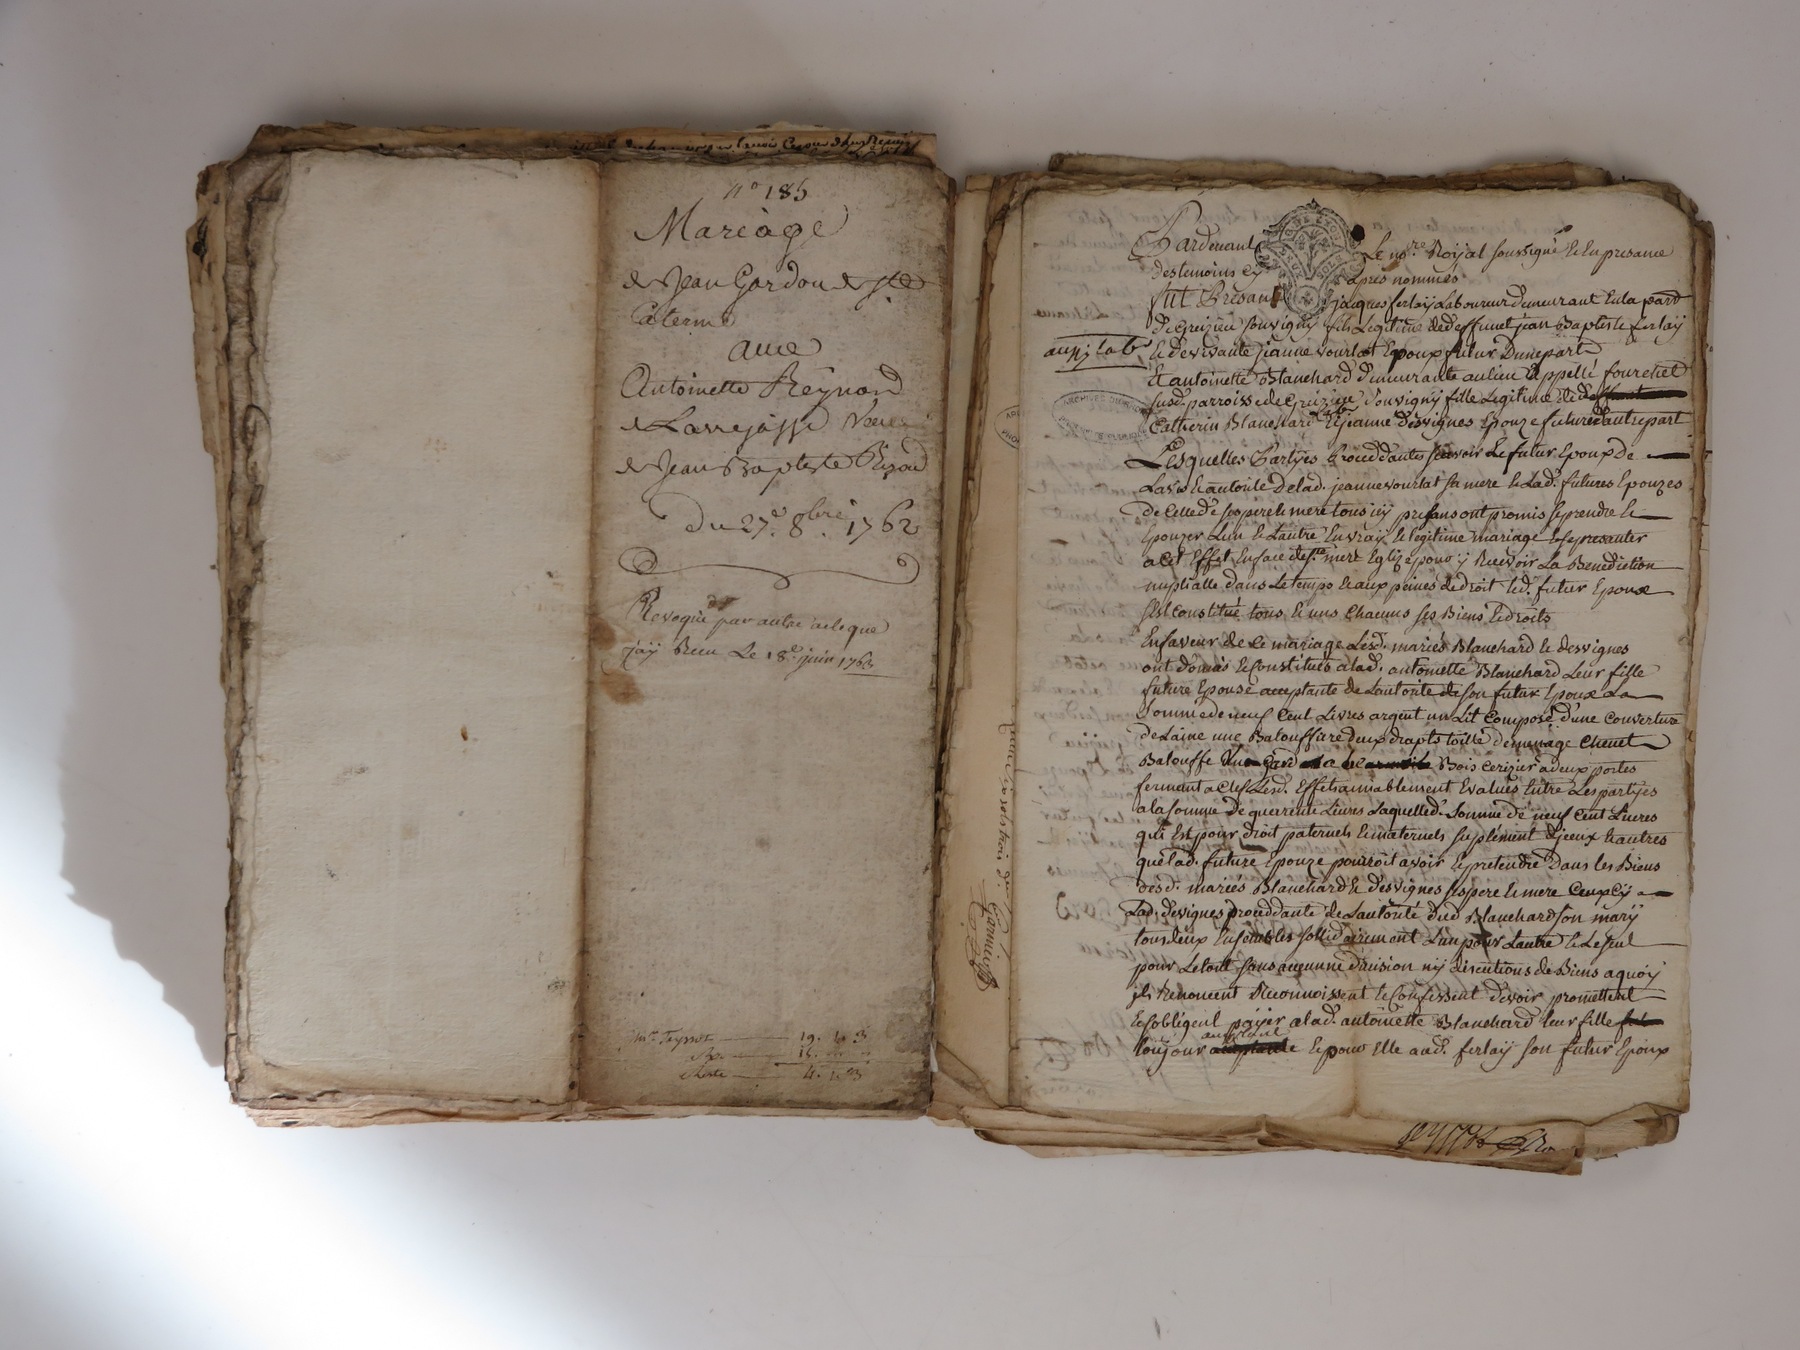 n.º 185
Mariage
de Jean Gardon de Ste
Caterine
avec
Antoinette Reynard
de Larrejasse veuve
de Jean Baptiste Bizord
du 27.e 8.bre 1762
Revoqué par autre acte que
j'ay Recu Le 18.e juin 1763
mr. Teyssot 19. 4. 3
Reste 4. 4. 3
Pardevant Le no.re Royal soussigné & En presance
des temoins cy apres nommés
fut Presant jacques ferlay Laboureur demeurant En la parr
de Greizieu souvigny fils Legitime de deffunct jean Baptiste ferlay
& de vivante jeanne vourlat Epoux futur Dune part
Et antoinette Blanchard demeurante au lieu appellé fourchet
susd. parroisse de Greizieu Souvigny fille Legitime de
Catherin Blanchard & jeanne desvignes Epouze future d'autre part
Lesquelles Partyes Proceddantes sçavoir Le futur Epoux de
Lavis & autorité de lad. jeanne vourlat sa mere & Lad. futures Epouzes
de Celle de ses pere & mere tous icy presans ont promis se prendre &
Epouzer Lun & Lautre En vray & legitime mariage & se presanter
a cet Effet En face de ste mere Eglize pour y Recevoir La Benediction
nuptialle dans Le temps & aux peines de droit led. futur Epoux
s'est constitué tous & uns Chacuns ses Biens & droits
En faveur de Ce mariage Lesd. mariés Blanchard & desvignes
ont donnés & Constitués a lad. antoinette Blanchard Leur fille
future Epouse acceptante de Lautorité de son futur Epoux La
Somme de neuf Cent Livres argent un Lit Composé d'une Couverture
de Laine une Balouffiere deux drapts toille de menage Chevet
Balouffe Bois cerizier a deux portes
fermant a Clef Lesd. Effets amiablement Evalués Entre Les partyes
a la somme de quarente Livres Laquelled. Somme de neuf Cent Livres
qui Est pour droit paternels & maternels suplement dJeux & autres
que lad. future Epouze pourroit avoir & pretendre Dans les Biens
desd. mariés Blanchard & desvignes ses pere & mere Ceux cy
Lad. desvignes proceddante de Lautorité dud Blanchard son mary
tous deux Ensembles sollidairement L'un pour Lautre & Le seul
pour Le tout sans aucunne division ny discutions de Biens a quoy
ils Renoncent Reconnoissent & Confessent devoir promettent
& sobligent payer a lad. antoinette Blanchard leur fille
toujour & pour Elle aud. ferlay son futur Epoux